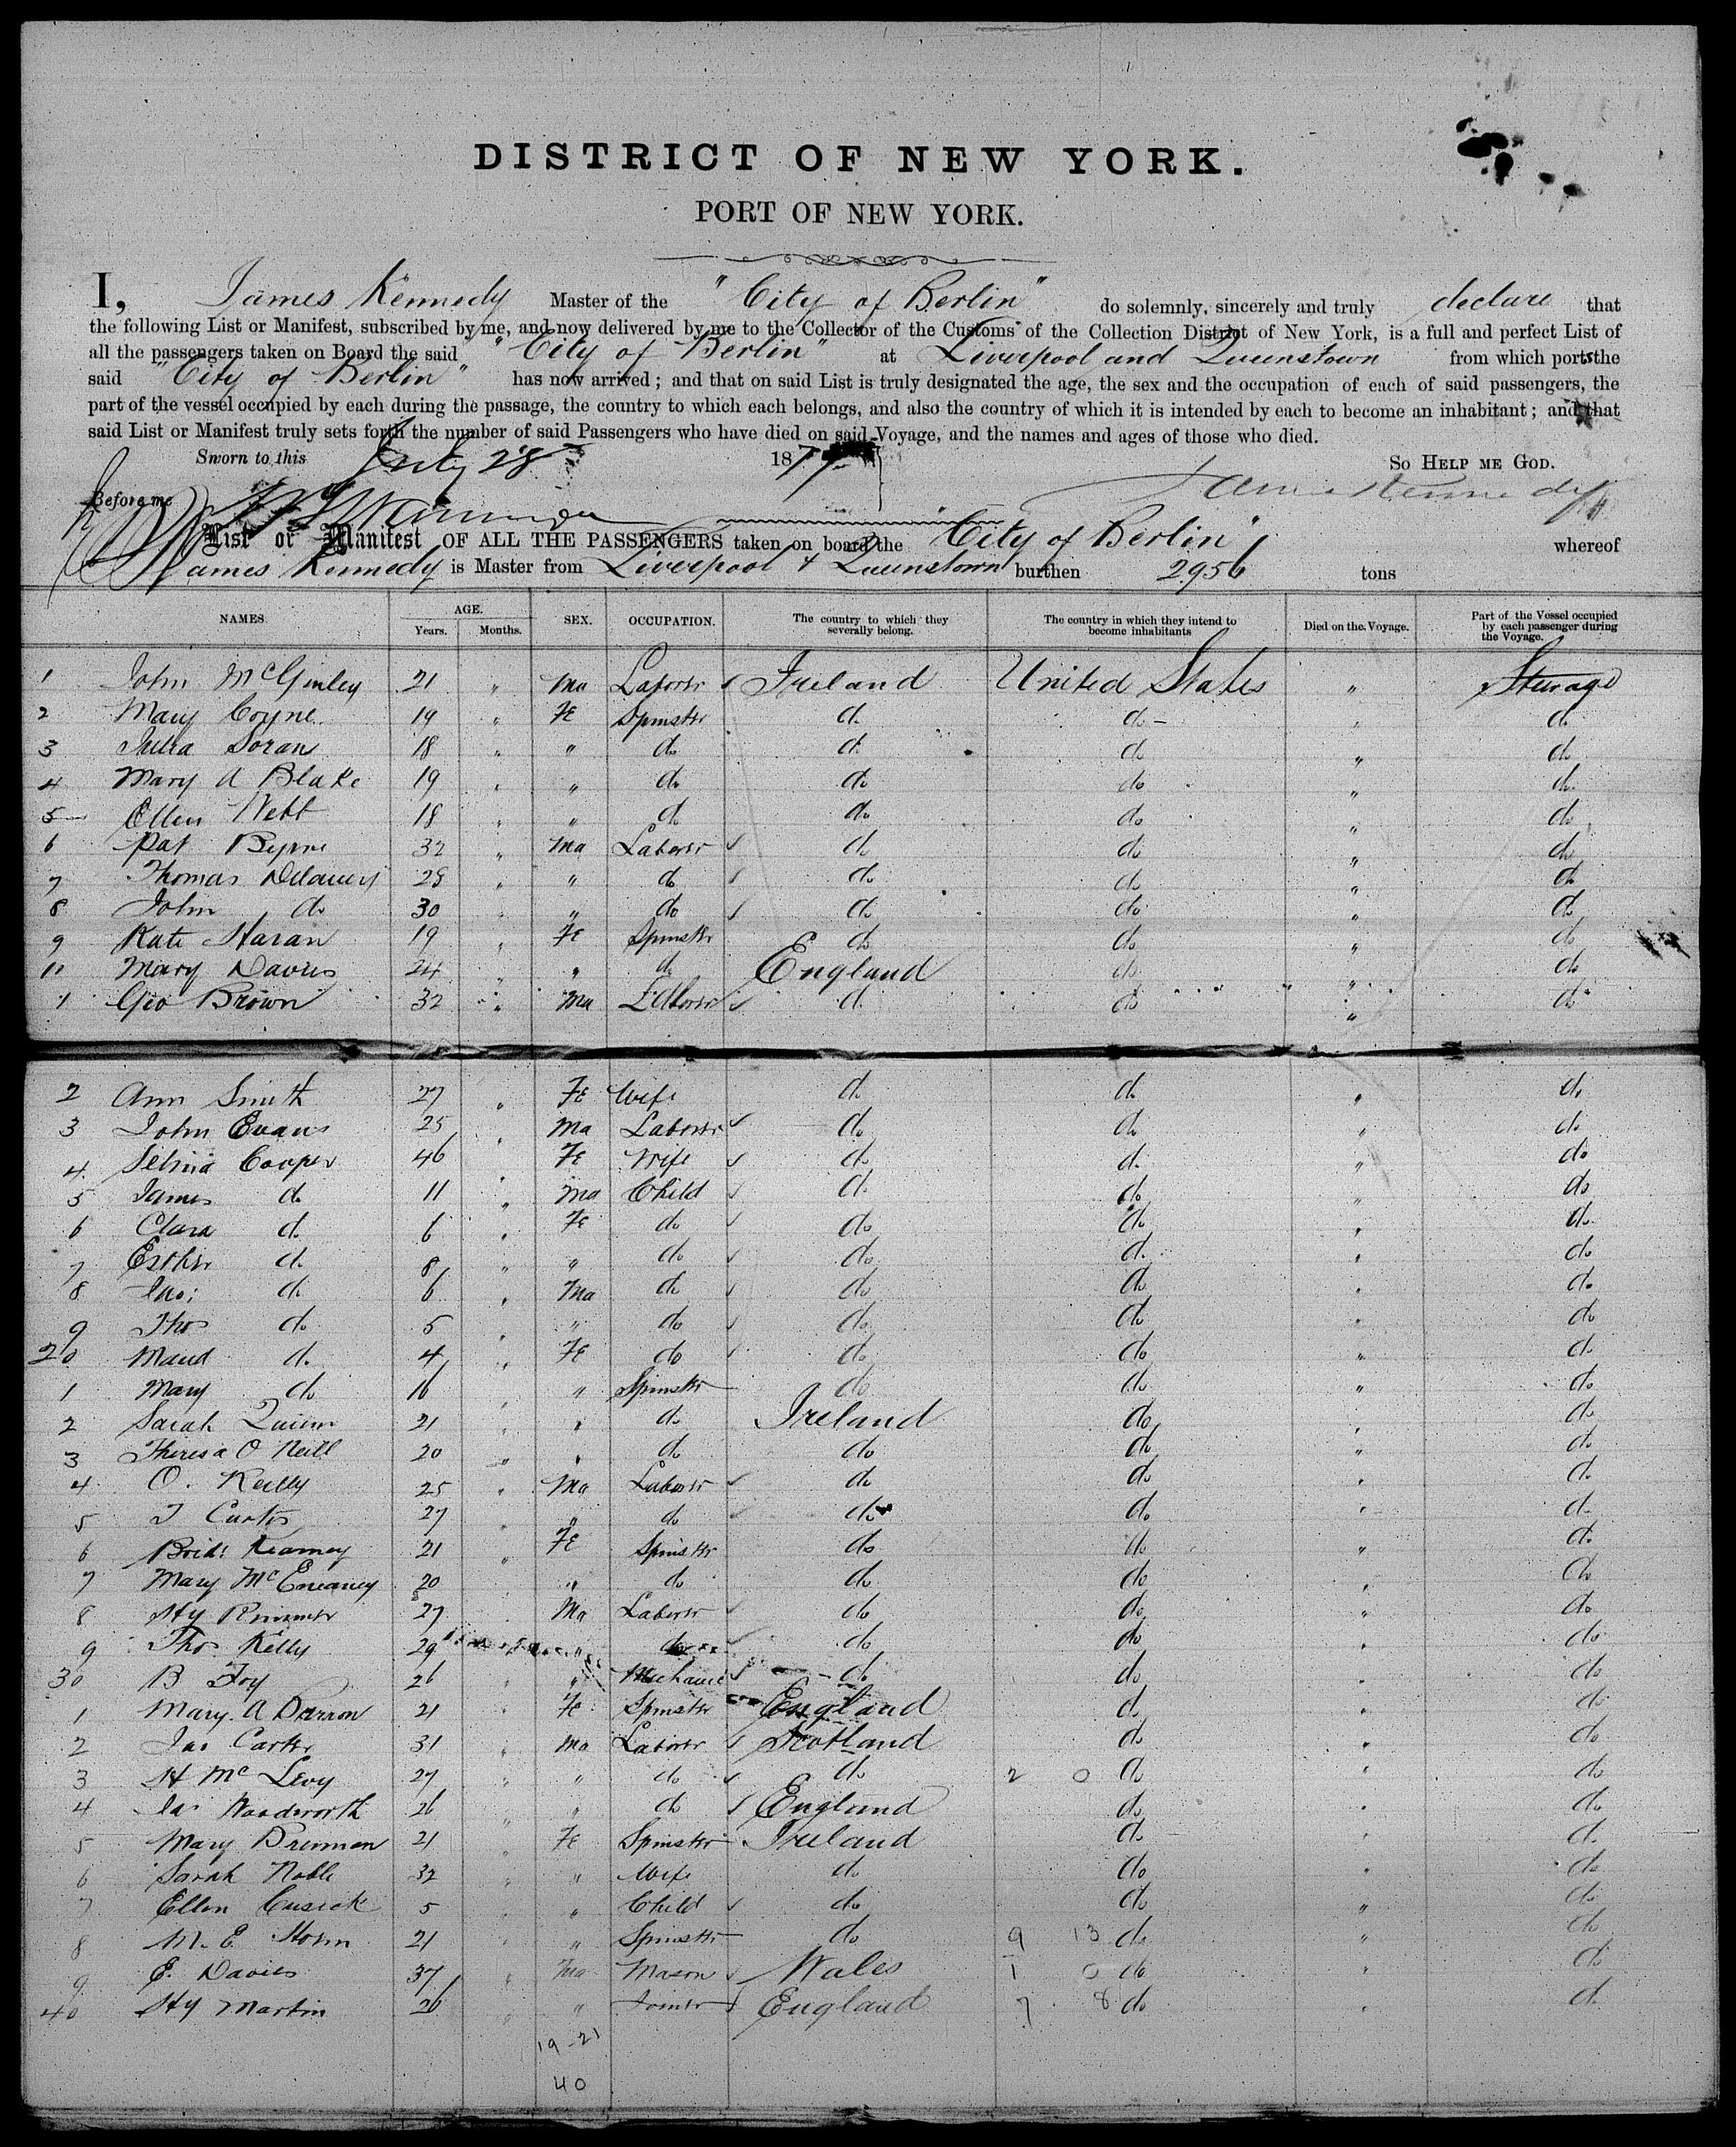 DISTRICT OF NEW YORK.
PORT OF NEW YORK.
I, James Kennedy Master of the "City of Berlin" do solemnly, sincerely and truly declare that
the following List or Manifest, subscribed by me, and now delivered by me to the Collector of the Customs of the Collection District of New York, is a full and perfect List of
all the passengers taken on Board the said "City of Berlin" at Liverpool and Queenstown from which ports the
said "City of Berlin" has now arrived; and that on said List is truly designated the age, the sex and the occupation of each of said passengers, the
part of the vessel occupied by each during the passage, the country to which each belongs, and also the country of which it is intended by each to become an inhabitant; and that
said List or Manifest truly sets forth the number of said Passengers who have died on said Voyage, and the names and ages of those who died.
Sworn to this July 28 1877 So Help me God.
Before me James Kennedy
List or Manifest OF ALL THE PASSENGERS taken on board the "City of Berlin" whereof
James Kennedy is Master from Liverpool & Queenstown burthen 2956 tons
NAMES. AGE. SEX. OCCUPATION. The country to which they severally belong. The country in which they intend to become inhabitants Died on the Voyage. Part of the Vessel occupied by each passenger during the Voyage.
Years. Months.
1 John McGinley 21 " Ma Laborer Ireland United States " Sturage
2 Mary Coyne 19 " Fe Spinster do do " do
3 Julia Doran 18 " " do do do " do
4 Mary A Blake 19 " " do do do " do
5 Ellen Webb 18 " " do do do " do
6 Pat Byrne 32 " Ma Laborer do do " do
7 Thomas Delaney 28 " " do do do " do
8 John do 30 " " do do do " do
9 Kate Haran 19 " Fe Spinster do do " do
10 Mary Davies 24 " " do England do " do
1 Geo Brown 32 " Ma Laborer do do " do
2 Ann Smith 27 " Fe Wife do do " do
3 John Evans 25 " Ma Laborer do do " do
4 Selina Cooper 46 " Fe Wife do do " do
5 James do 11 " Ma Child do do " do
6 Clara do 6 " Fe do do do " do
7 Esther do 8 " " do do do " do
8 Jas: do 6 " Ma do do do " do
9 Thos do 5 " " do do do " do
20 Maud do 4 " Fe do do do " do
1 Mary do 16 " " Spinster do do " do
2 Sarah Quinn 21 " " do Ireland do " do
3 Theresa O Neill 20 " " do do do " do
4 O. Reilly 25 " Ma Laborer do do " do
5 T Curtis 27 " " do do do " do
6 Brid: Kearney 21 " Fe Spinster do do " do
7 Mary McEneaney 20 " " do do do " do
8 Hy Rimmer 27 " Ma Laborer do do " do
9 Thos Kelly 29 " do do do " do
30 B Foy 26 " " Mechanic do do " do
1 Mary A Barron 21 " Fe Spinster England do " do
2 Jas Carter 31 " Ma Laborer Scotland do " do
3 H McLevy 27 " " do do 2 0 do " do
4 Jas Woodworth 26 " " do England do " do
5 Mary Brennan 21 " Fe Spinster Ireland do " do
6 Sarah Noble 32 " " Wife do do " do
7 Ellen Cusick 5 " " Child do do " do
8 M. E. 21 " " Spinster do 9 13 do " do
9 E. Davies 37 " Ma Mason Wales 1 0 do " do
40 Hy Martin 26 " " Joiner England 7 8 do " do
19-21
40